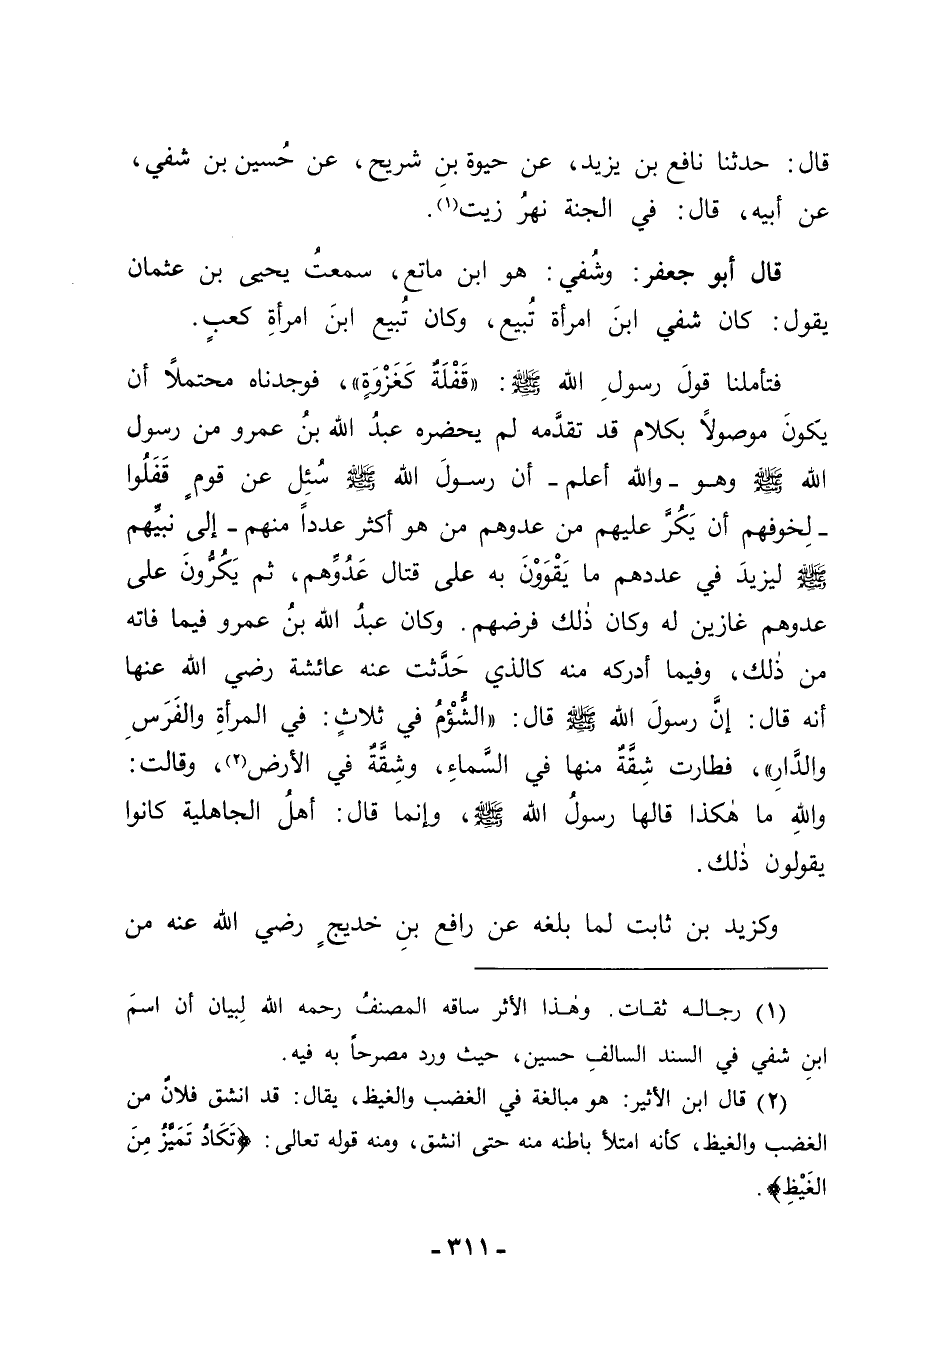 قال: حدثنا نافع بن يزيد، عن حيوة بنِ شريح، عن حُسين بن شفي،
عن أبيه، قال: في الجنة نهرُ زيت(١).
قال أبو جعفر: وشُفي: هو ابن ماتع، سمعتُ يحيى بن عثمان
يقول: كان شفي ابنَ امرأة تُبيع، وكان تُبيع ابنَ امرأةِ كعبٍ.
فتأملنا قولَ رسولِ الله ﷺ: «قَفْلَةٌ كَغَزْوَةٍ»، فوجدناه محتملاً أن
يكونَ موصولاً بكلام قد تقدَّمه لم يحضره عبدُ الله بنُ عمرو من رسول
الله ﷺ وهـو ـ والله أعلم ـ أن رسـولَ الله ﷺ سُئِل عن قومٍ قَفَلُوا
ـ لِخوفهم أن يَكُرَّ عليهم من عدوهم من هو أكثر عدداً منهم ـ إلى نبيِّهم
ﷺ ليزيدَ في عددهم ما يَقْوَوْنَ به على قتال عَدُوِّهم، ثم يَكُرُّونَ على
عدوهم غازين له وكان ذٰلك فرضهم. وكان عبدُ الله بنُ عمرو فيما فاته
من ذٰلك، وفيما أدركه منه كالذي حَدَّثت عنه عائشة رضي الله عنها
أنه قال: إنَّ رسولَ الله ﷺ قال: «الشُّؤْمُ في ثلاثٍ: في المرأةِ والفَرَسِ
والدَّارِ»، فطارت شِقَّةٌ منها في السَّماءِ، وشِقَّةٌ في الأرض(٢)، وقالت:
واللهِ ما هٰكذا قالها رسولُ الله ﷺ، وإنما قال: أهلُ الجاهلية كانوا
يقولون ذٰلك.
وكزيد بن ثابت لما بلغه عن رافع بنِ خديجٍ رضي الله عنه من
(١) رجـالـه ثقـات. وهٰـذا الأثر ساقه المصنفُ رحمه الله لِبيان أن اسمَ
ابنِ شفي في السند السالفِ حسين، حيث ورد مصرحاً به فيه.
(٢) قال ابن الأثير: هو مبالغة في الغضب والغيظ، يقال: قد انشق فلانٌ من
الغضب والغيظ، كأنه امتلأ باطنه منه حتى انشق، ومنه قوله تعالى: ﴿تَكَادُ تَمَيَّزُ مِنَ
الغَيْظِ﴾.
ـ ٣١١ ـ